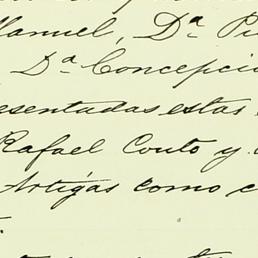 Manuel, Dª Pi
Dª Concepció
esentadas estas
Rafael Couto y
Artigas como c